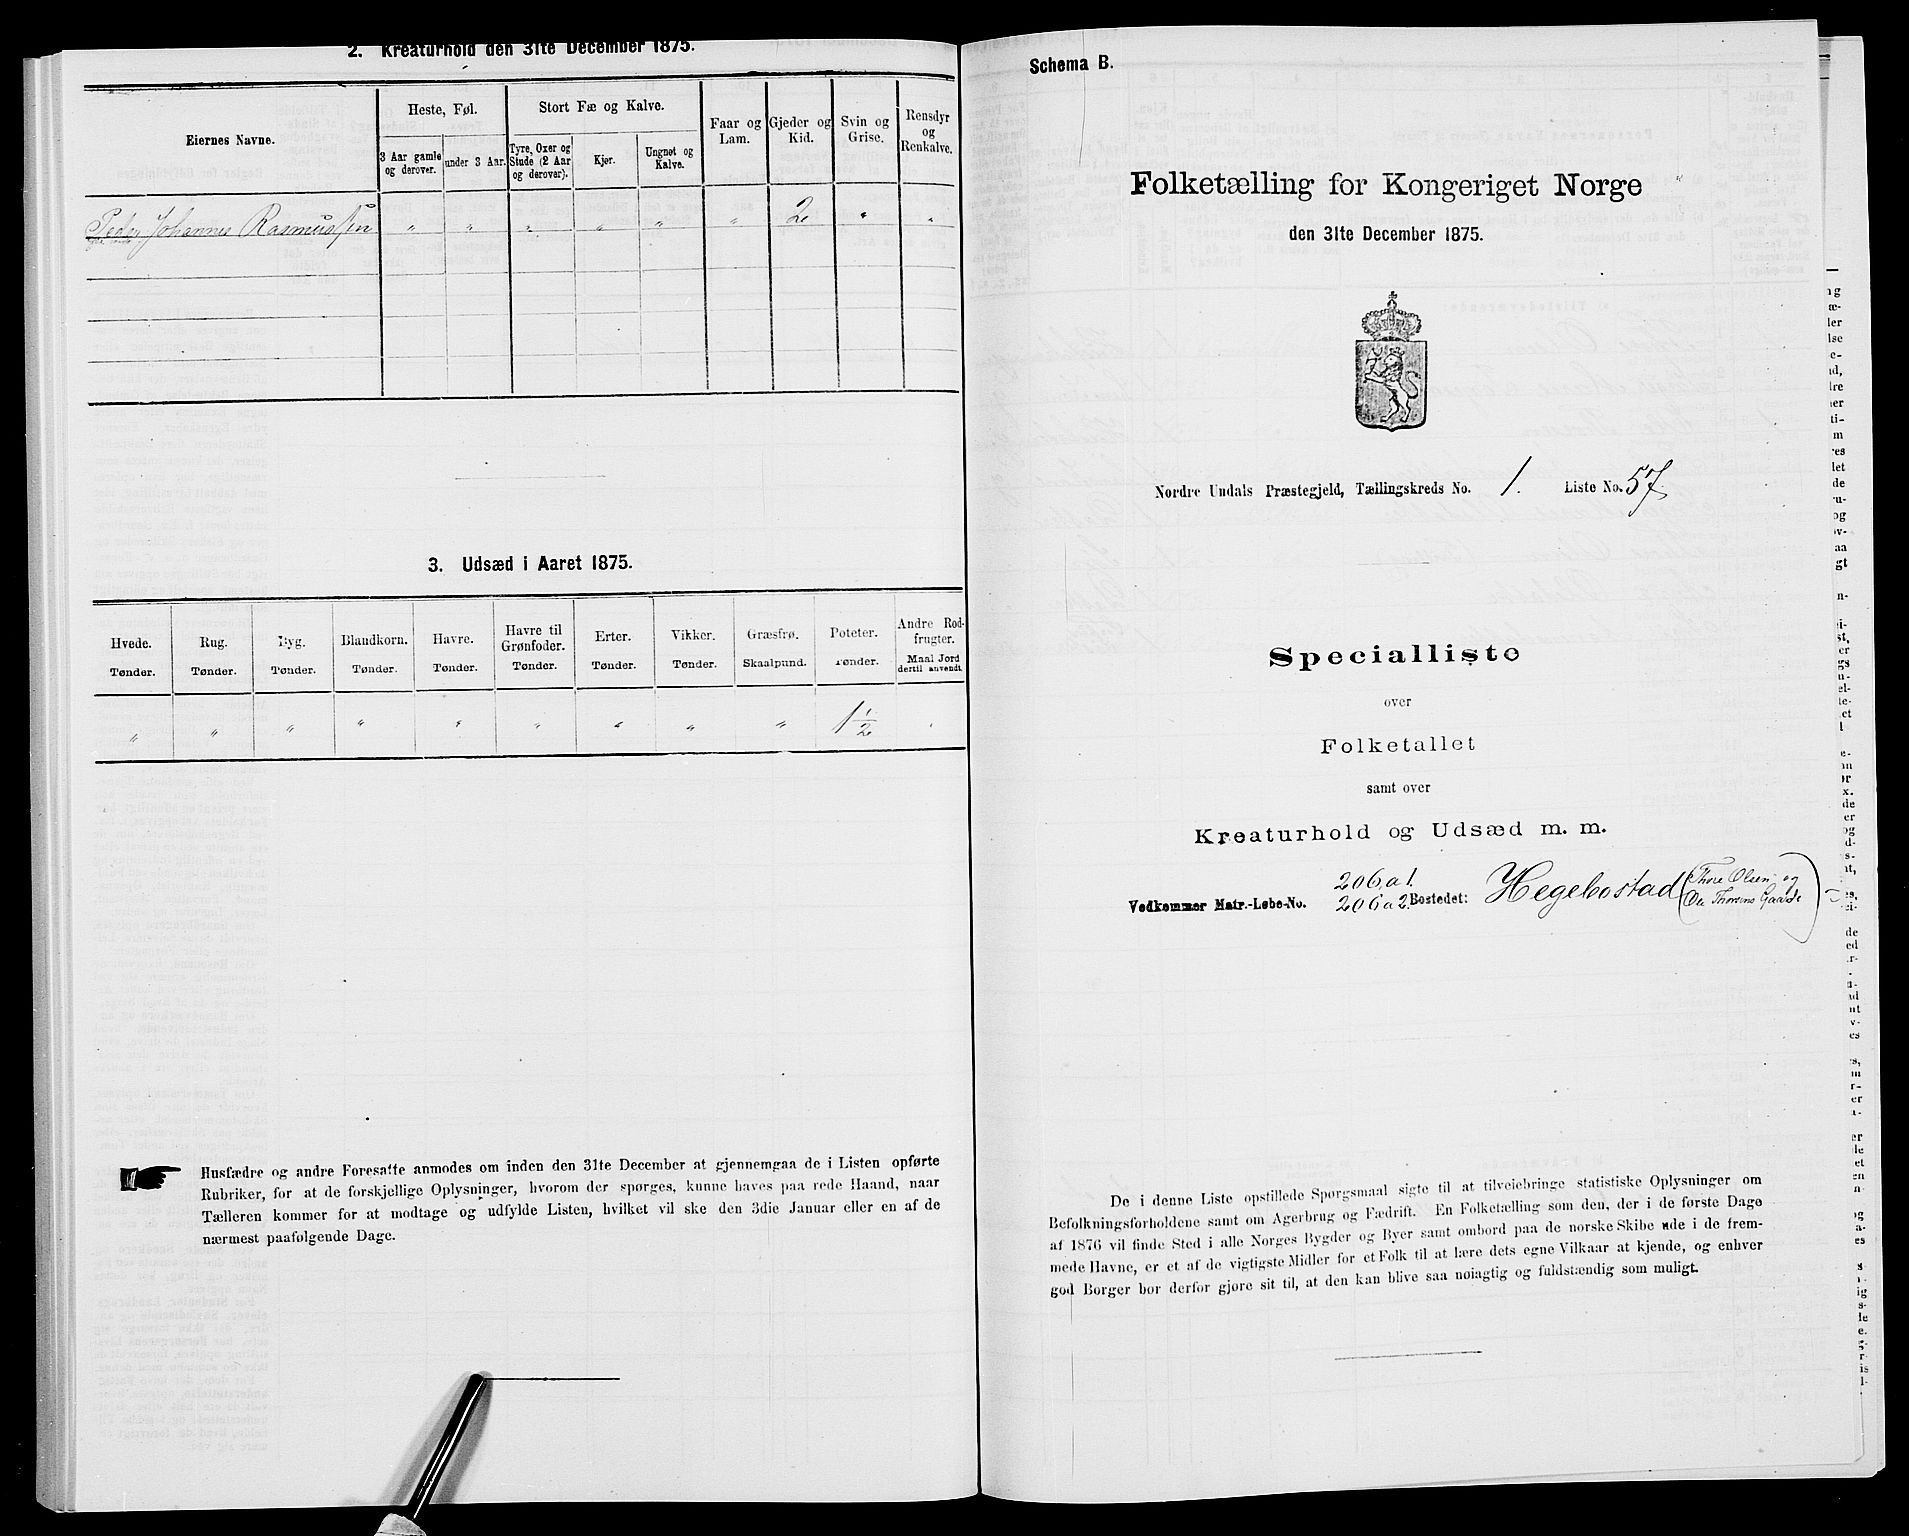 2. Kreaturhold den 31te December 1875.
Eiernes Navne.
Heste, Føl.
3 Aar gamle og derover.
under 3 Aar.
Stort Fæ og Kalve.
Tyre, Oxer og Stude (2 Aar og derover).
Kjør.
Ungnøt og Kalve.
Faar og Lam.
Gjeder og Kid.
Svin og Grise.
Rensdyr og Renkalve.
Peder Johannes Rasmussen " " " " " " 2 " "
3. Udsæd i Aaret 1875.
Hvede. Tønder.
Rug. Tønder.
Byg. Tønder.
Blandkorn. Tønder.
Havre. Tønder.
Havre til Grønfoder. Tønder.
Erter. Tønder.
Vikker. Tønder.
Græsfrø. Skaalpund.
Poteter. Tønder.
Andre Rodfrugter. Maal Jord dertil anvendt.
" " " " " " " " " 1 1/2 "
Husfædre og andre Foresatte anmodes om inden den 31te December at gjennemgaa de i Listen opførte
Rubriker, for at de forskjellige Oplysninger, hvorom der spørges, kunne haves paa rede Haand, naar
Tælleren kommer for at modtage og udfylde Listen, hvilket vil ske den 3die Januar eller en af de
nærmest paafølgende Dage.
Schema B.
Folketælling for Kongeriget Norge
den 31te December 1875.
Nordre Undals Præstegjeld, Tællingskreds No. 1. Liste No. 57.
Specialliste
over
Folketallet
samt over
Kreaturhold og Udsæd m. m.
Vedkommer Matr.-Løbe-No. 206a1. 206a2. Bostedet: Hegebostad (Thore Olsen og Ole Thorsens Gaarde)
De i denne Liste opstillede Spørgsmaal sigte til at tilveiebringe statistiske Oplysninger om
Befolkningsforholdene samt om Agerbrug og Fædrift. En Folketælling som den, der i de første Dage
af 1876 vil finde Sted i alle Norges Bygder og Byer samt ombord paa de norske Skibe ude i de frem-
mede Havne, er et af de vigtigste Midler for et Folk til at lære dets egne Vilkaar at kjende, og enhver
god Borger bør derfor gjøre sit til, at den kan blive saa nøiagtig og fuldstændig som muligt.